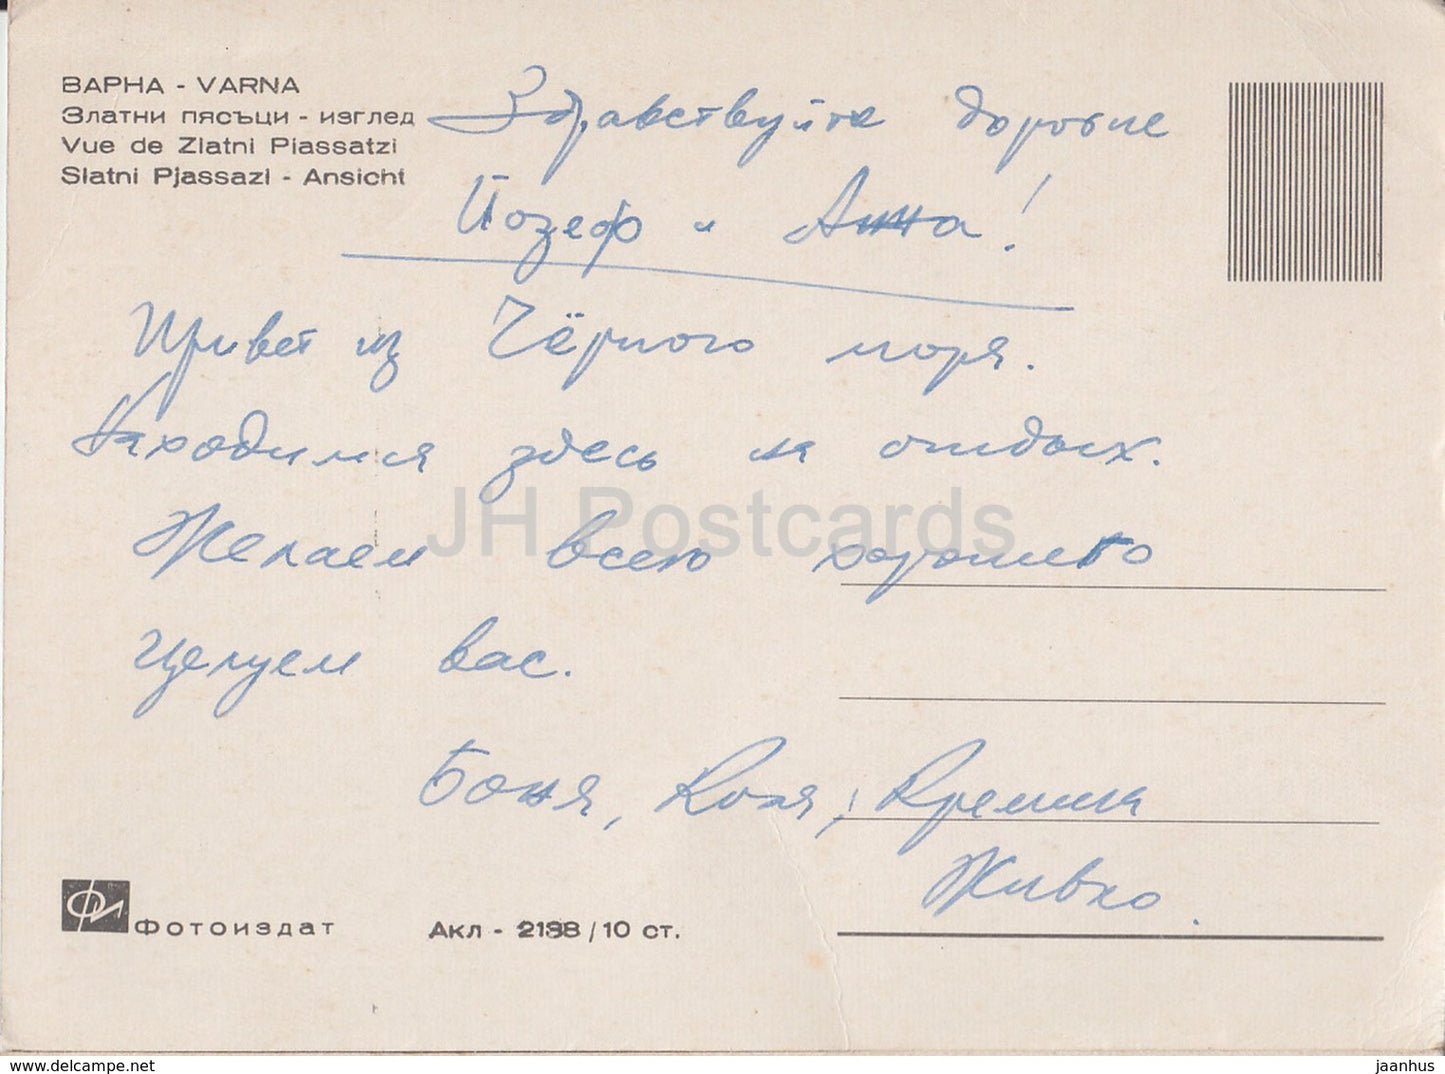 ВАРНА - VARNA
Златни пясъци - изглед
Vue de Zlatni Piassatzi
Slatni Pjassazi - Ansicht
Здравствуйте дорогие
Йозеф и Анна!
Привет из Чёрного моря.
Находимся здесь на отдых.
Желаем всего хорошего
Целуем вас.
Боня, Коля,
Живко.
JH Postcards
Фотоиздат
Акл - 2188/10 ст.
delcampe.net
jaanhus